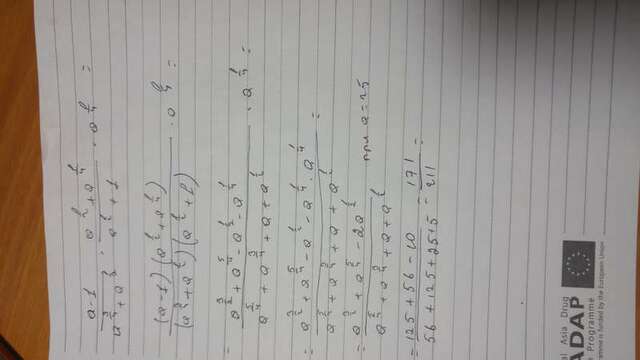 a-1 / a^{3/4}+a^{1/2} · a^{1/2}+a^{1/4} / a^{1/2}+1 · a^{1/4} =
(a-1)(a^{1/2}+a^{1/4}) / (a^{3/4}+a^{1/2})(a^{1/2}+1) · a^{1/4} =
= a^{3/2}+a^{5/4}-a^{1/2}-a^{1/4} / a^{5/4}+a^{3/4}+a+a^{1/2} · a^{1/4} =
= a^{3/2}+a^{5/4}-a^{1/2}-a^{1/4}·a^{1/4} / a^{5/4}+a^{3/4}+a+a^{1/2} =
= a^{3/2}+a^{5/4}-2a^{1/2} / a^{5/4}+a^{3/4}+a+a^{1/2} при a=25
= 125+56-10 / 56+125+25+5 = 171 / 211 =
Asia Drug
ADAP
Programme
is funded by the European Union